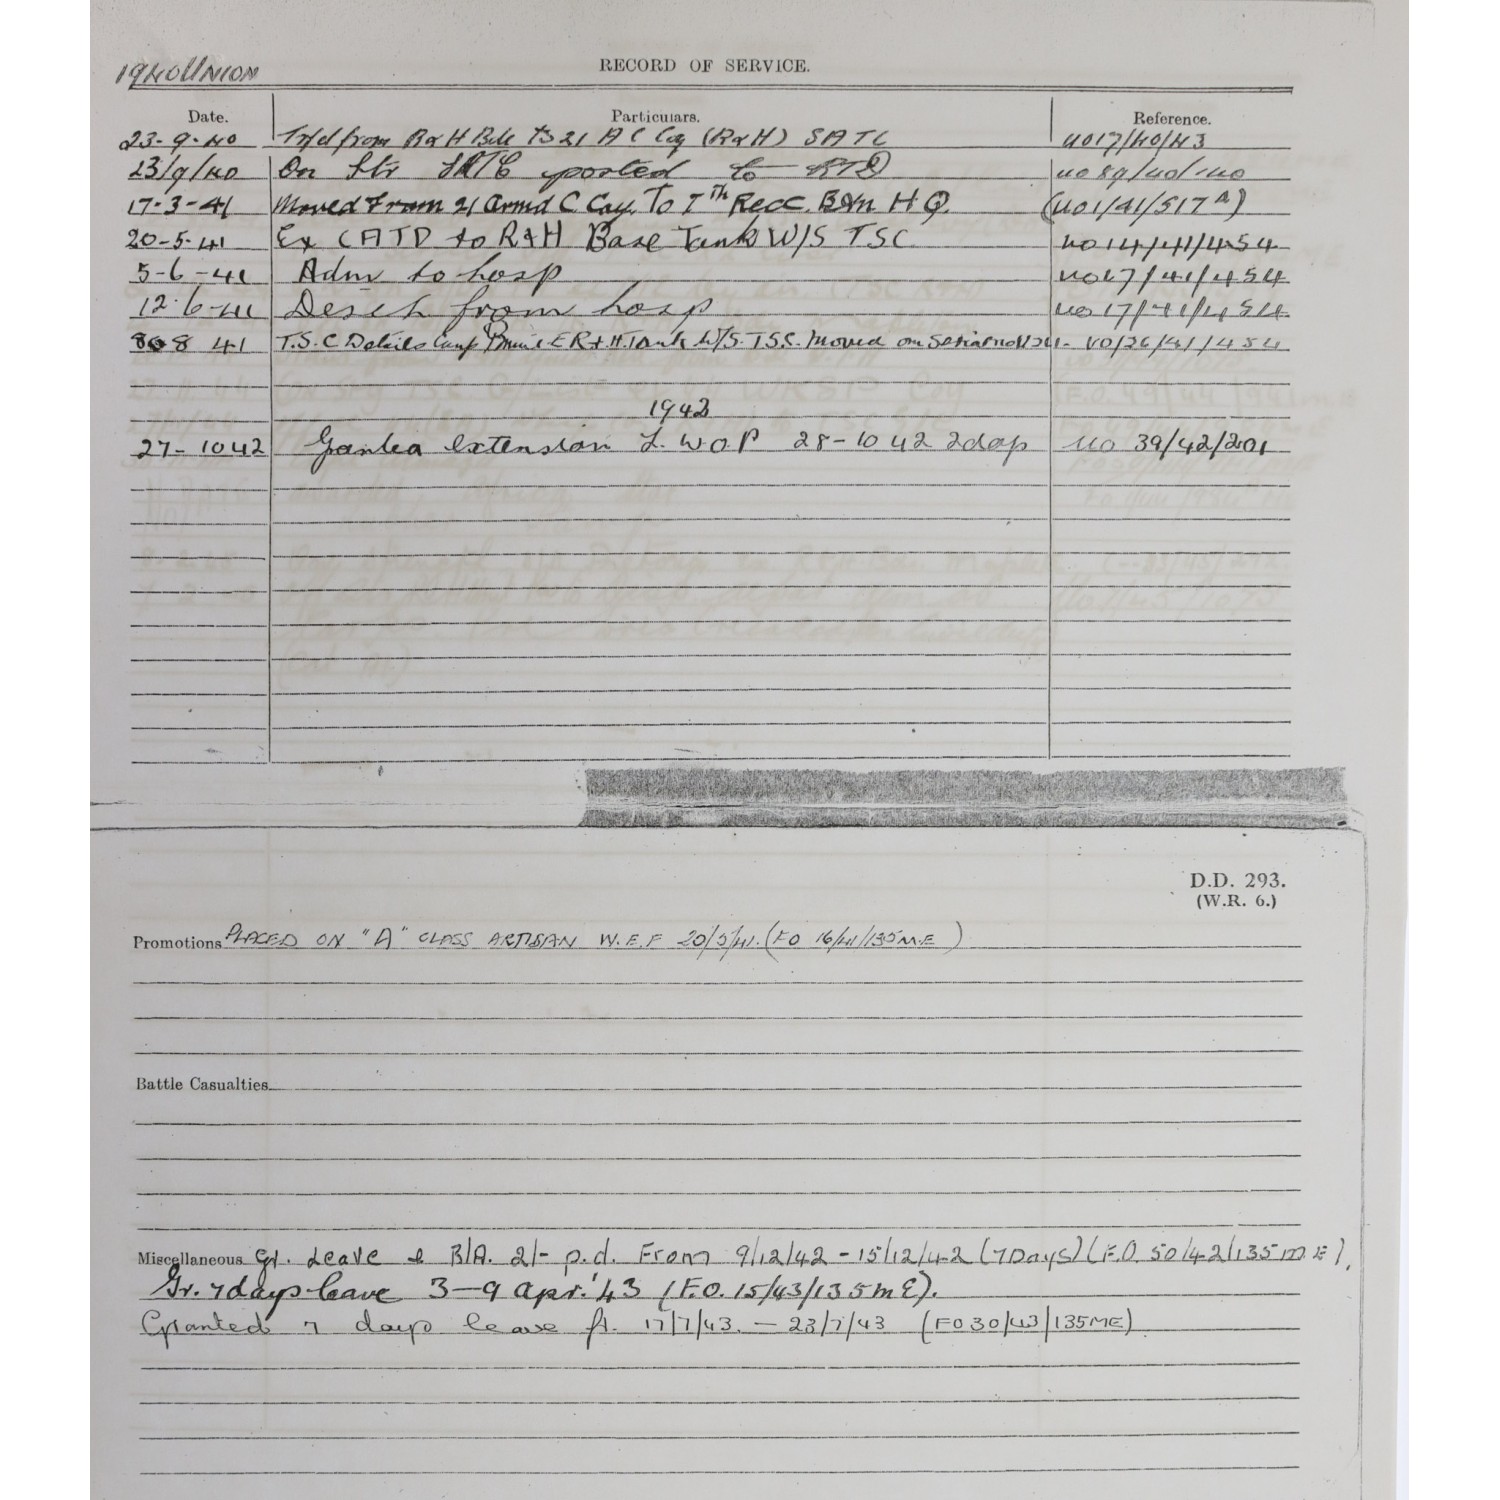 1940 UNION
RECORD OF SERVICE.
Date. Particulars. Reference.
23-9-40 Tr/d from R&H Bde to 21 A C Coy (R&H) SATC UO17/40/43
23/9/40 On Str SATC posted to UO 89/40/140
17-3-41 Moved From 21 Armd C Coy. To 7th Recc. BNn H Q. (UO1/41/517A)
20-5-41 Ex CATD to R&H Base Tank W/S TSC UO 14/41/454
5-6-41 Adm to hosp UO17/41/454
12-6-41 Desch from hosp UO 17/41/454
8 41 T.S.C Details Camp R+H. Tank W/S. T.S.C. Moved on Serial no UO/26/41/454
1942
27-10 42 Granted extension L.W.O.P 28-10 42 2days UO 39/42/201
D.D. 293.
(W.R. 6.)
Promotions PLACED ON "A" CLASS ARTISAN W.E.F 20/5/41. (FO 16/41/135M.E)
Battle Casualties
Miscellaneous Gr. Leave & R/A. 2/- p.d. From 9/12/42 - 15/12/42 (7Days) (F.O. 50/42/135 M E).
Gr. 7 days leave 3-9 Apr. '43 (F.O. 15/43/135 M E).
Granted 7 days leave fr. 17/7/43. - 23/7/43 (FO30/43/135ME)